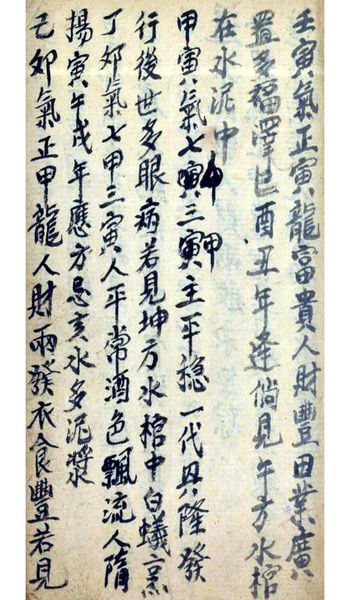 壬寅氣正寅龍富貴人財豐田業廣
置多福澤巳酉丑年逢倘見午方水棺
在水泥中
甲寅氣七寅三寅主平穩一代興隆發
甲
行後世多眼病若見坤方水棺中白蟻
丁卯氣七甲三寅人平常酒色飄流人隋
揚寅午戌年應方忌亥水多泥漿
己卯氣正甲龍人財兩發衣食豐若見